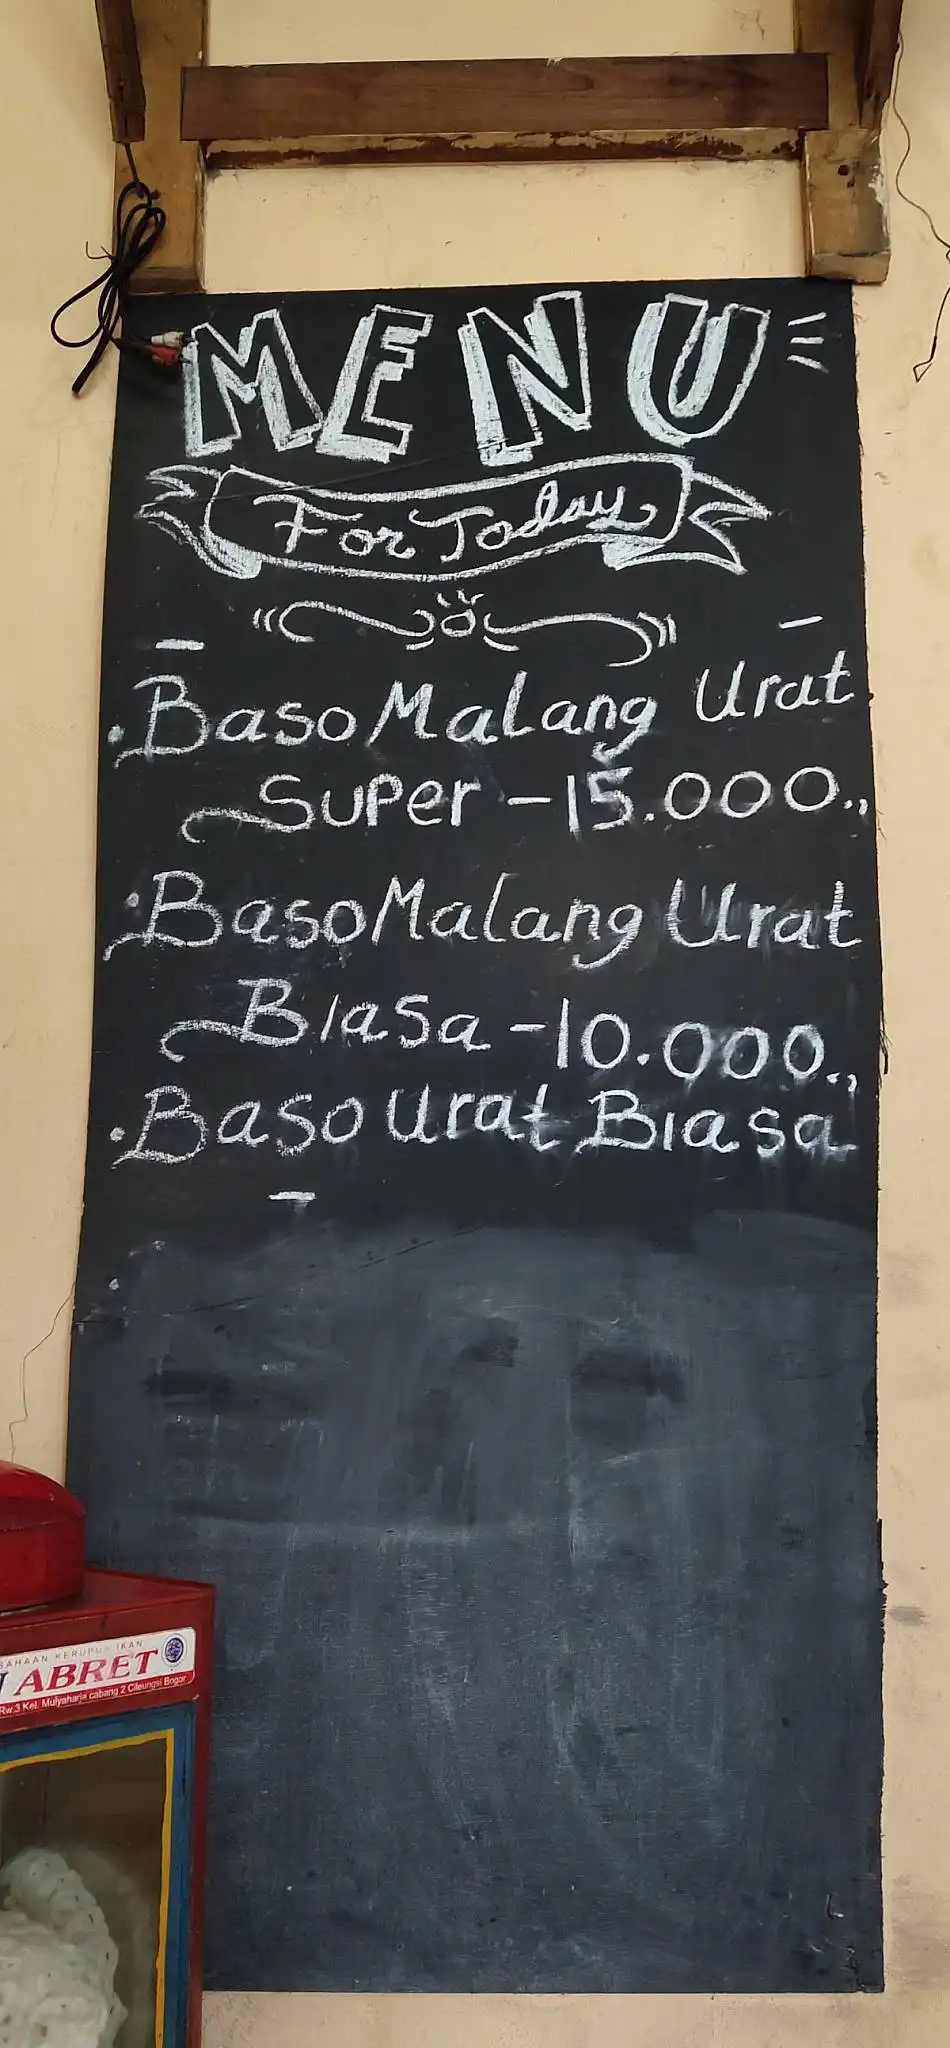 MENU
For Today
· Baso Malang Urat
Super - 15.000.,
· Baso Malang Urat
Biasa - 10.000.,
· Baso Urat Biasa
-
SAHAAN KERUPUK IKAN
ABRET
Rw.3 Kel. Mulyaharja cabang 2 Cileungsi Bogor